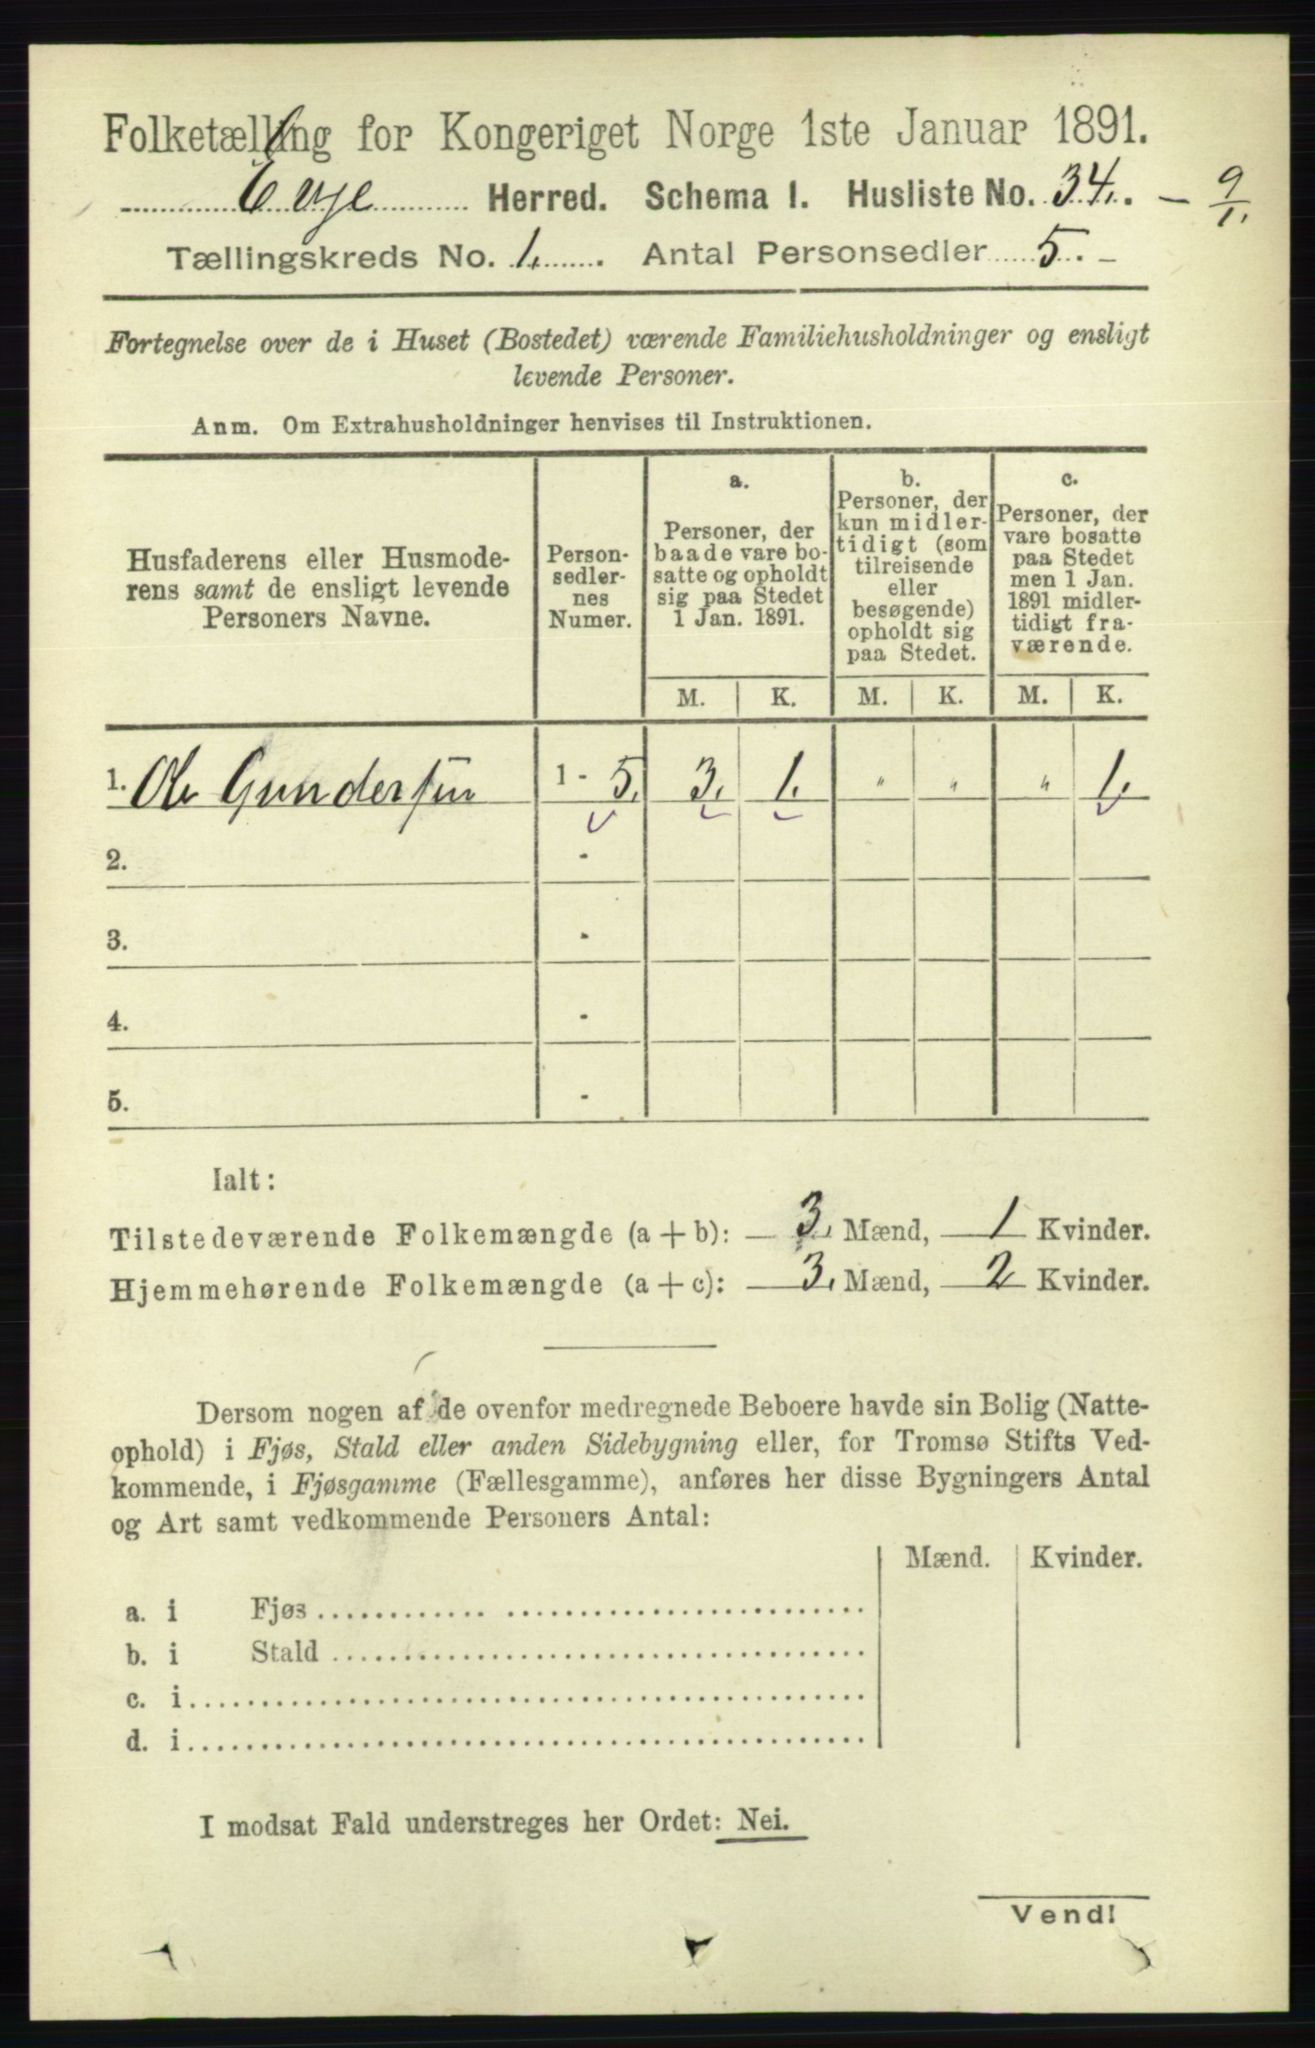 Folketælling for Kongeriget Norge 1ste Januar 1891.
Evje Herred. Schema I. Husliste No. 34. - 9/1.
Tællingskreds No. 1. Antal Personsedler 5. -
Fortegnelse over de i Huset (Bostedet) værende Familiehusholdninger og ensligt
levende Personer.
Anm. Om Extrahusholdninger henvises til Instruktionen.
Husfaderens eller Husmode-
rens samt de ensligt levende
Personers Navne.
Person-
sedler-
nes
Numer.
a.
Personer, der
baade vare bo-
satte og opholdt
sig paa Stedet
1 Jan. 1891.
b.
Personer, der
kun midler-
tidigt (som
tilreisende
eller
besøgende)
opholdt sig
paa Stedet.
c.
Personer, der
vare bosatte
paa Stedet
men 1 Jan.
1891 midler-
tidigt fra-
værende.
M. K. M. K. M. K.
1. Ole Gundersen 1 - 5. 3. 1. " " " 1.
2. -
3. -
4. -
5. -
Ialt:
Tilstedeværende Folkemængde (a + b): 3. Mænd, 1 Kvinder.
Hjemmehørende Folkemængde (a + c): 3. Mænd, 2 Kvinder.
Dersom nogen af de ovenfor medregnede Beboere havde sin Bolig (Natte-
ophold) i Fjøs, Stald eller anden Sidebygning eller, for Tromsø Stifts Ved-
kommende, i Fjøsgamme (Fællesgamme), anføres her disse Bygningers Antal
og Art samt vedkommende Personers Antal:
Mænd. Kvinder.
a. i Fjøs
b. i Stald
c. i
d. i
I modsat Fald understreges her Ordet: Nei.
Vend!